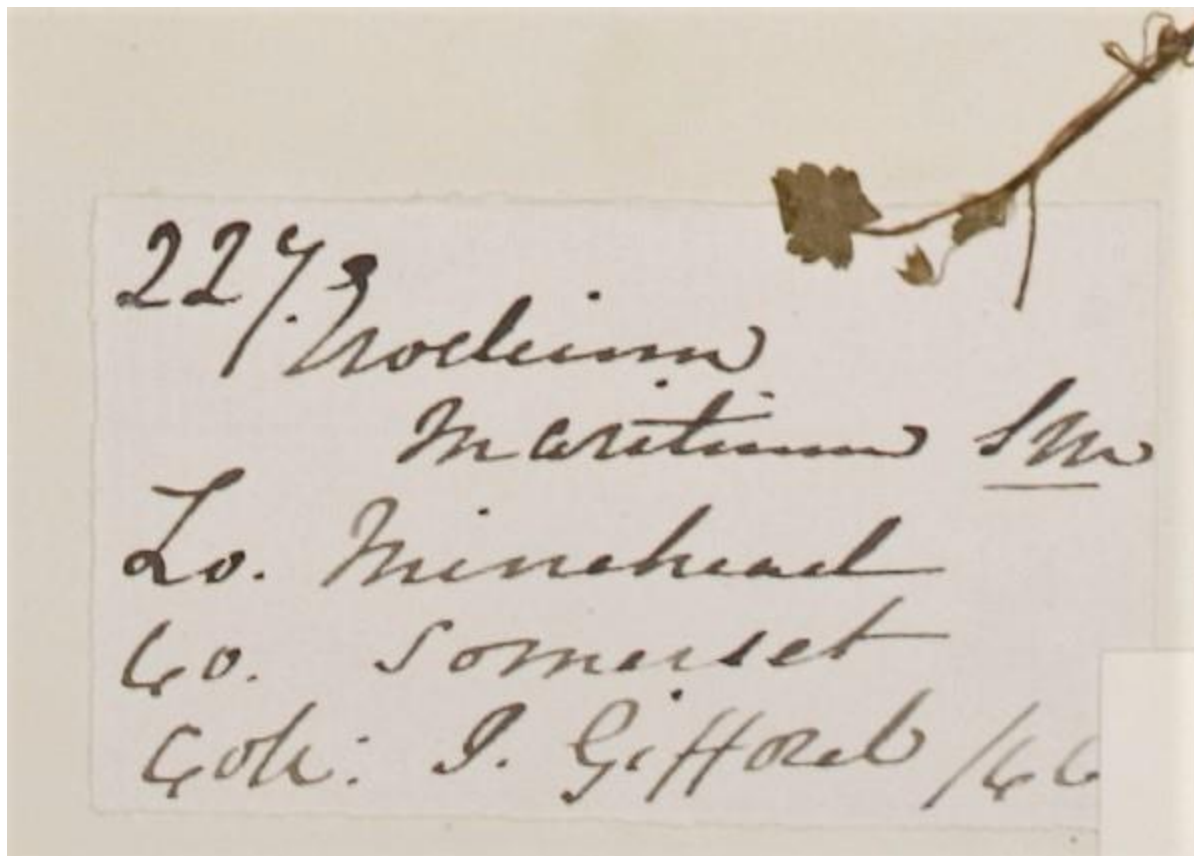 227. Erodium
maritimum Sm
Lo. Minehead
Co. Somerset
Coll: I. Gifford /66